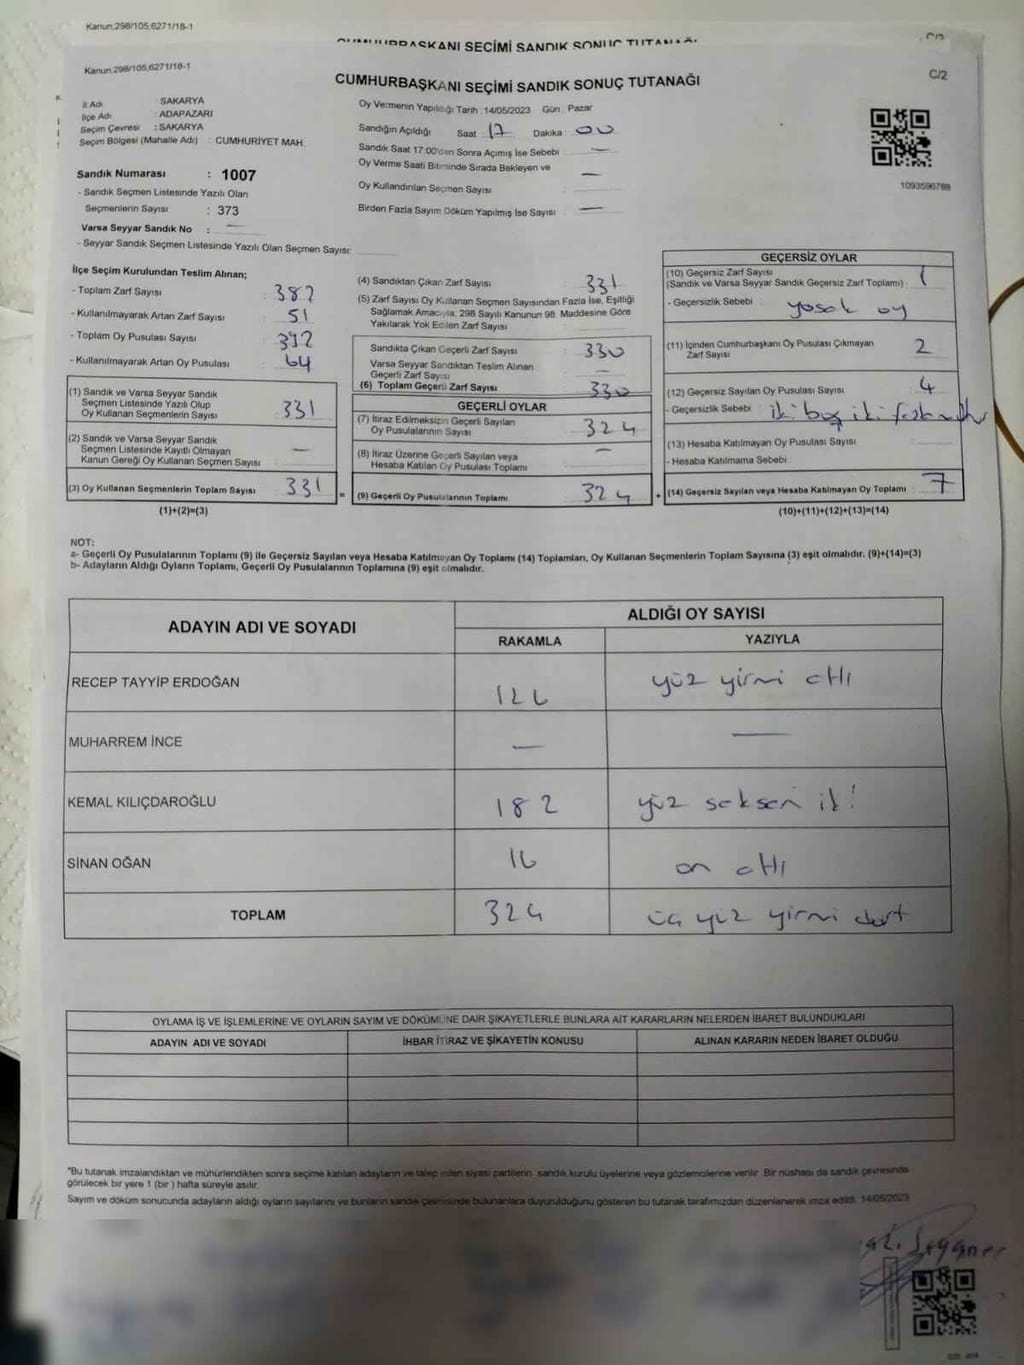 Kanun;298/105,6271/18-1
CUMHURBAŞKANI SEÇİMİ SANDIK SONUÇ TUTANAĞI
Kanun;298/105,6271/18-1
C/2
CUMHURBAŞKANI SEÇİMİ SANDIK SONUÇ TUTANAĞI
İl Adı : SAKARYA
İlçe Adı : ADAPAZARI
Seçim Çevresi : SAKARYA
Seçim Bölgesi (Mahalle Adı) : CUMHURİYET MAH.
Sandık Numarası : 1007
- Sandık Seçmen Listesinde Yazılı Olan
Seçmenlerin Sayısı : 373
Varsa Seyyar Sandık No : —
- Seyyar Sandık Seçmen Listesinde Yazılı Olan Seçmen Sayısı:
Oy Vermenin Yapıldığı Tarih :14/05/2023 Gün : Pazar
Sandığın Açıldığı Saat : 17 Dakika : 00
Sandık Saat 17:00'den Sonra Açımış İse Sebebi : —
Oy Verme Saati Bitiminde Sırada Bekleyen ve
Oy Kullandırılan Seçmen Sayısı : —
Birden Fazla Sayım Döküm Yapılmış İse Sayısı : —
1093596788
İlçe Seçim Kurulundan Teslim Alınan;
- Toplam Zarf Sayısı : 382
- Kullanılmayarak Artan Zarf Sayısı : 51
- Toplam Oy Pusulası Sayısı : 392
- Kullanılmayarak Artan Oy Pusulası : 64
(1) Sandık ve Varsa Seyyar Sandık
Seçmen Listesinde Yazılı Olup
Oy Kullanan Seçmenlerin Sayısı : 331
(2) Sandık ve Varsa Seyyar Sandık
Seçmen Listesinde Kayıtlı Olmayan
Kanun Gereği Oy Kullanan Seçmen Sayısı : —
(3) Oy Kullanan Seçmenlerin Toplam Sayısı : 331
(1)+(2)=(3)
=
(4) Sandıktan Çıkan Zarf Sayısı : 331
(5) Zarf Sayısı Oy Kullanan Seçmen Sayısından Fazla İse, Eşitliği
Sağlamak Amacıyla; 298 Sayılı Kanunun 98. Maddesine Göre
Yakılarak Yok Edilen Zarf Sayısı
Sandıkta Çıkan Geçerli Zarf Sayısı : 330
Varsa Seyyar Sandıktan Teslim Alınan
Geçerli Zarf Sayısı : —
(6) Toplam Geçerli Zarf Sayısı : 330
GEÇERLİ OYLAR
(7) İtiraz Edilmeksizin Geçerli Sayılan
Oy Pusulalarının Sayısı : 324
(8) İtiraz Üzerine Geçerli Sayılan veya
Hesaba Katılan Oy Pusulası Toplamı : —
(9) Geçerli Oy Pusulalarının Toplamı : 324
+
GEÇERSİZ OYLAR
(10) Geçersiz Zarf Sayısı
(Sandık ve Varsa Seyyar Sandık Geçersiz Zarf Toplamı) : 1
- Geçersizlik Sebebi :
(11) İçinden Cumhurbaşkanı Oy Pusulası Çıkmayan
Zarf Sayısı : 2
(12) Geçersiz Sayılan Oy Pusulası Sayısı : 4
- Geçersizlik Sebebi : iki boş iki
(13) Hesaba Katılmayan Oy Pusulası Sayısı :
- Hesaba Katılmama Sebebi :
(14) Geçersiz Sayılan veya Hesaba Katılmayan Oy Toplamı : 7
(10)+(11)+(12)+(13)=(14)
NOT:
a- Geçerli Oy Pusulalarının Toplamı (9) ile Geçersiz Sayılan veya Hesaba Katılmayan Oy Toplamı (14) Toplamları, Oy Kullanan Seçmenlerin Toplam Sayısına (3) eşit olmalıdır. (9)+(14)=(3)
b- Adayların Aldığı Oyların Toplamı, Geçerli Oy Pusulalarının Toplamına (9) eşit olmalıdır.
ADAYIN ADI VE SOYADI
ALDIĞI OY SAYISI
RAKAMLA YAZIYLA
RECEP TAYYİP ERDOĞAN 126 yüz yirmi altı
MUHARREM İNCE — —
KEMAL KILIÇDAROĞLU 182 yüz seksen iki
SİNAN OĞAN 16 on altı
TOPLAM 324 üç yüz yirmi dört
OYLAMA İŞ VE İŞLEMLERİNE VE OYLARIN SAYIM VE DÖKÜMÜNE DAİR ŞİKAYETLERLE BUNLARA AİT KARARLARIN NELERDEN İBARET BULUNDUKLARI
ADAYIN ADI VE SOYADI İHBAR İTİRAZ VE ŞİKAYETİN KONUSU ALINAN KARARIN NEDEN İBARET OLDUĞU
"Bu tutanak imzalandıktan ve mühürlendikten sonra seçime katılan adayların ve talep eden siyasi partilerin sandık kurulu üyelerine veya gözlemcilerine verilir. Bir nüshası da sandık çevresinde
görülecek bir yere 1 (bir) hafta süreyle asılır.
Sayım ve döküm sonucunda adayların aldığı oyların sayılarını ve bunların sandık çevresinde bulunanlara duyurulduğunu gösteren bu tutanak tarafımızdan düzenlenerek imza edildi. 14/05/2023